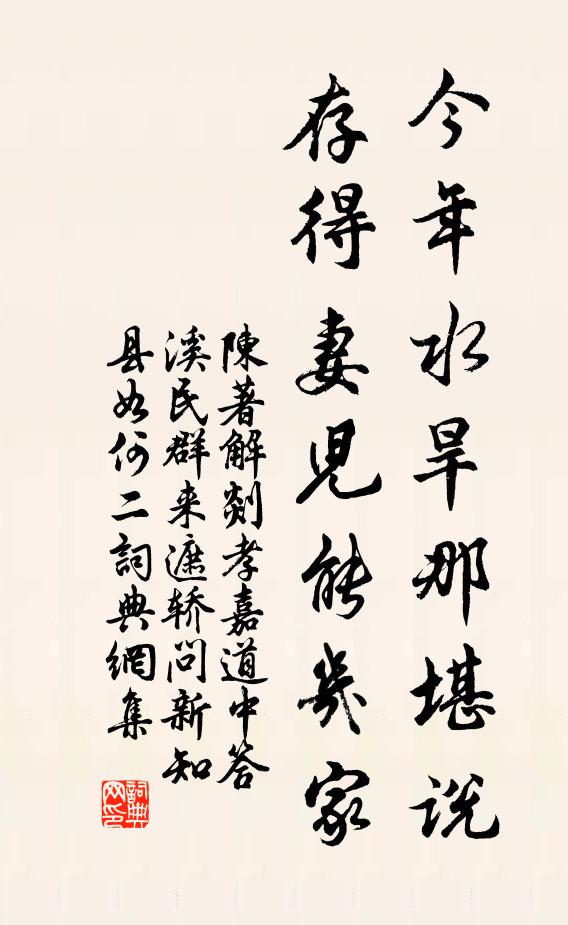 今年水旱那堪説
存得妻児能幾家
陳著解剡孝嘉道中答
溪民群来遮轿问新知
县如何二詞典網集
詞典网印